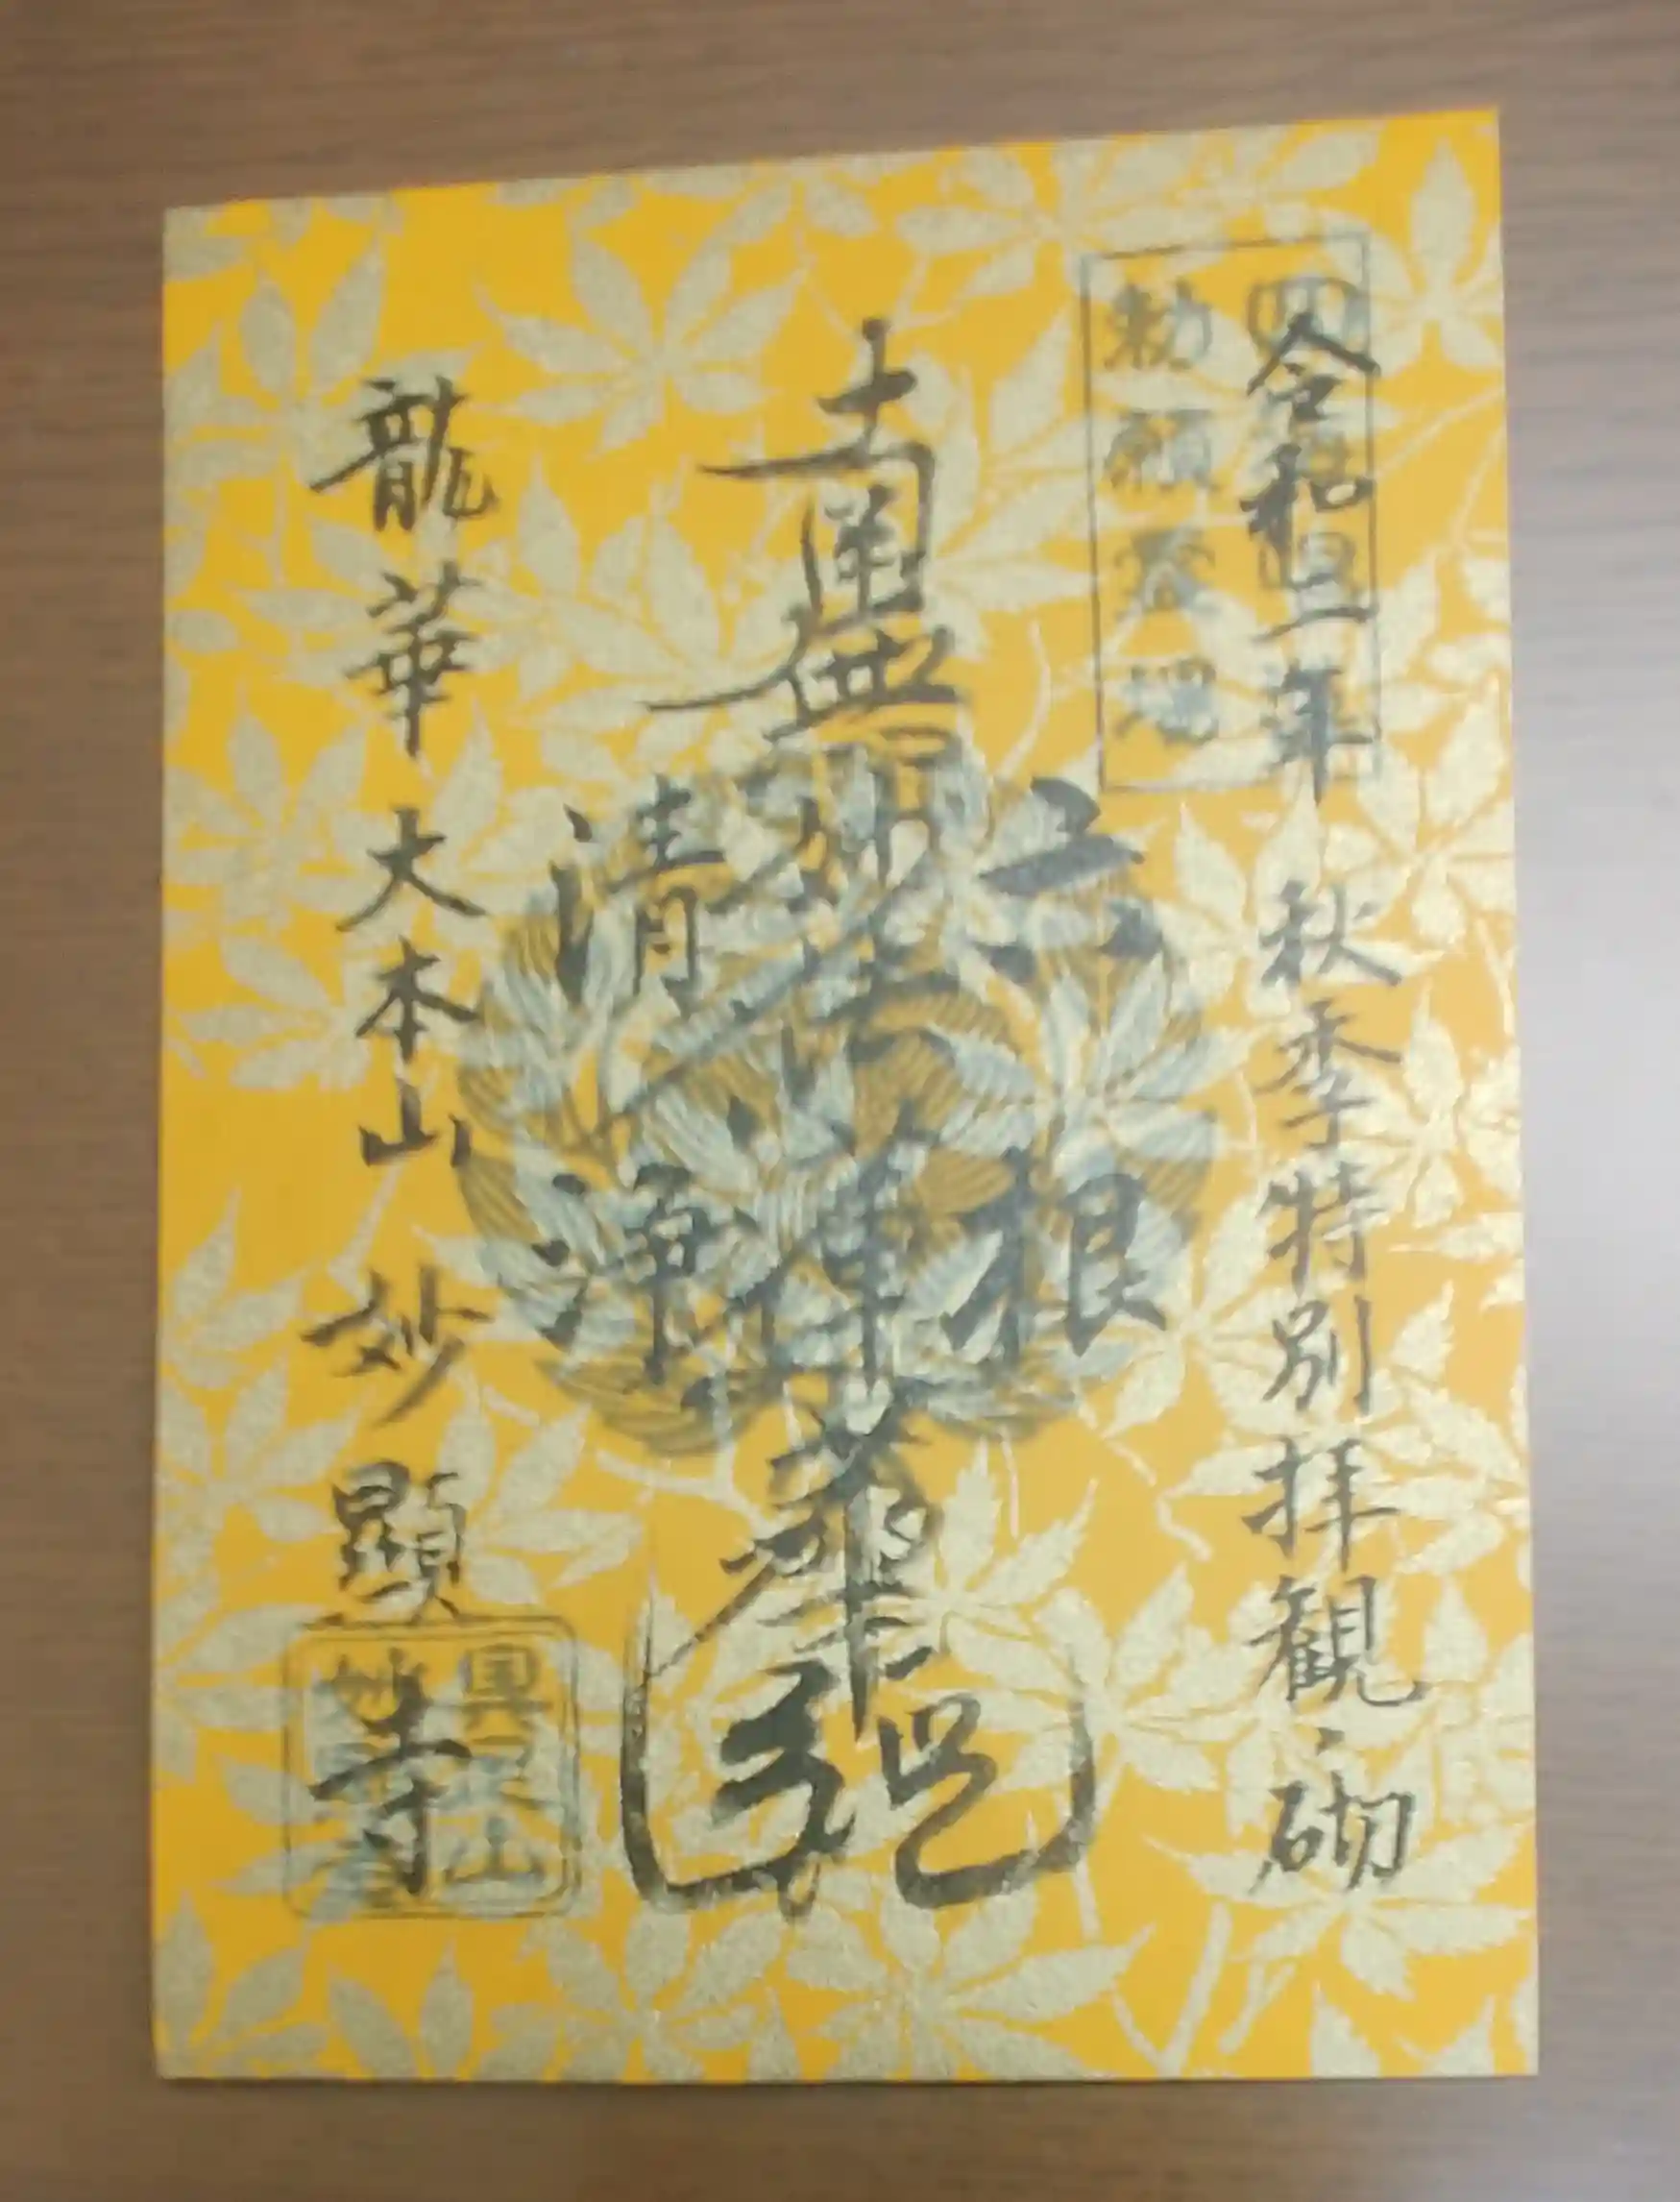 令和三年 秋季特別拝観之砌
勅願
六根
南無妙法蓮華経
清浄
龍華 大本山 妙顕寺
具足山
妙